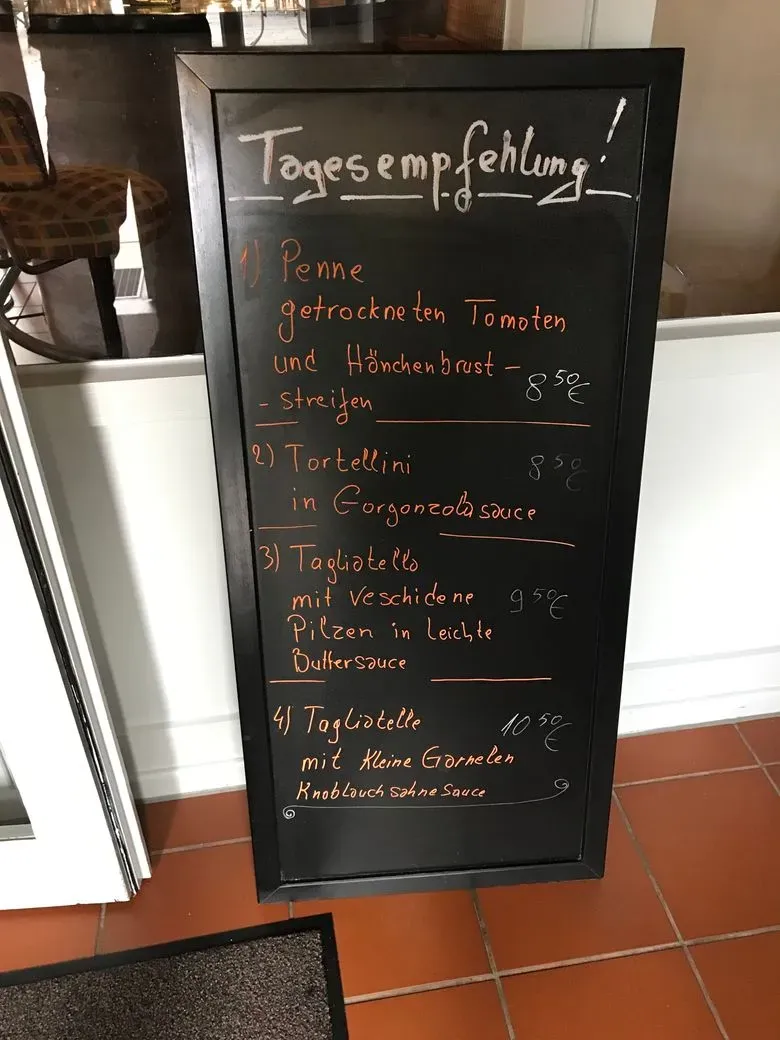 Tagesempfehlung!
1) Penne
getrockneten Tomaten
und Hänchenbrust -
- streifen 8 50 €
2) Tortellini 8 50 €
in Gorgonzolasauce
3) Tagliatelle
mit veschidene 9 50 €
Pilzen in leichte
Buttersauce
4) Tagliatelle 10 50 €
mit kleine Garnelen
Knoblauch sahne sauce